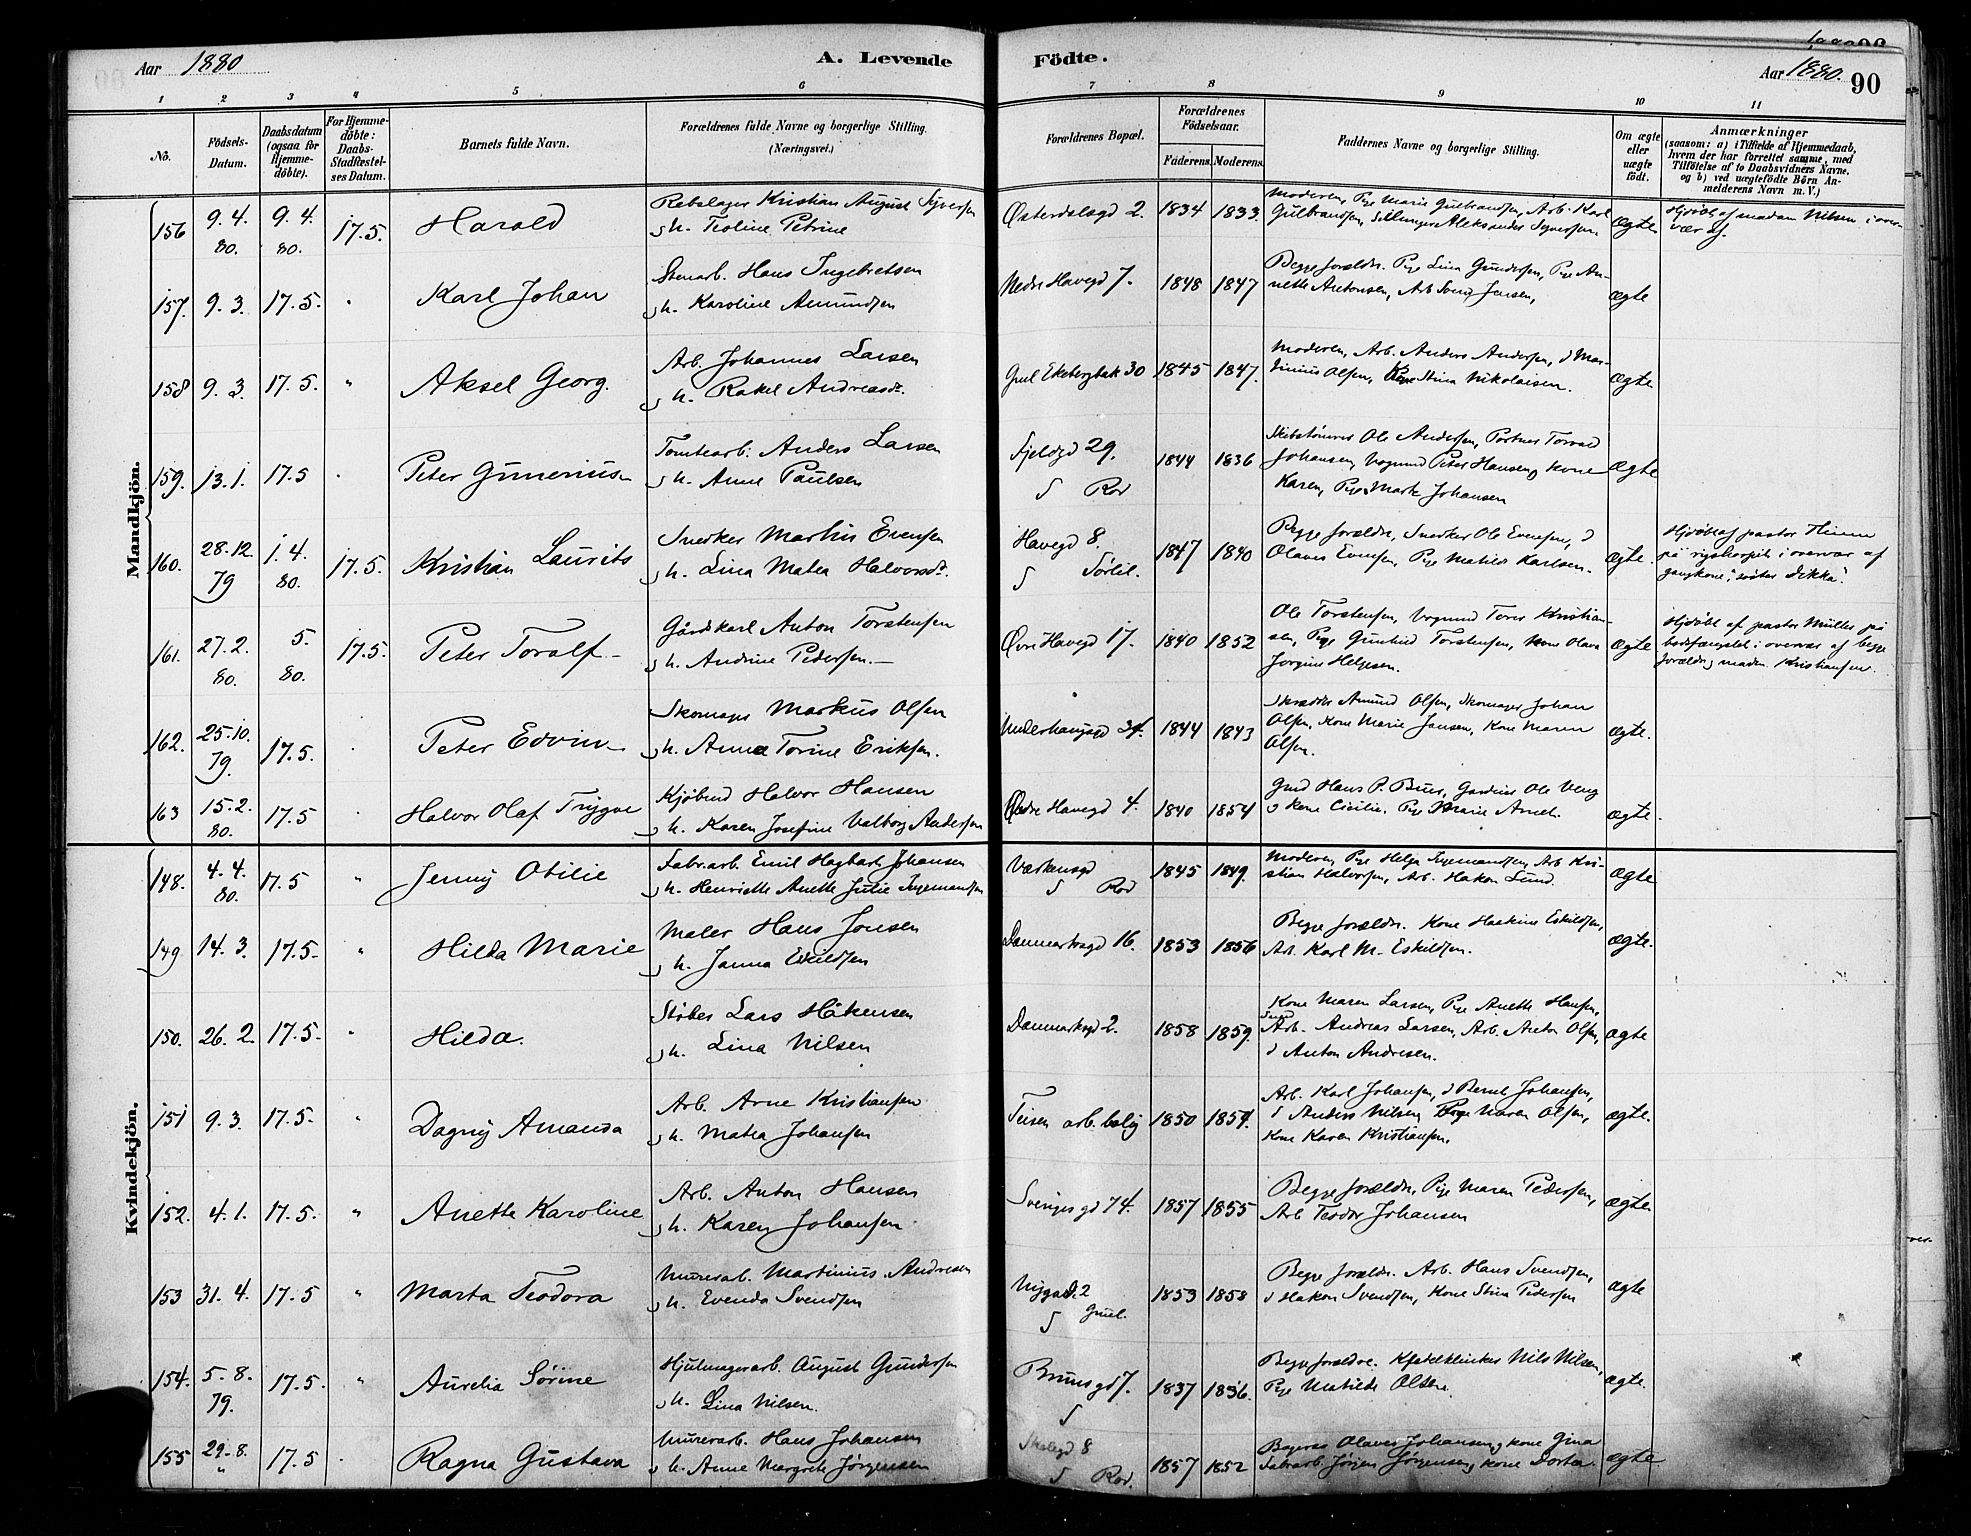 Aar 1880
A. Levende Födte.
Aar 1880. 90
1 2 3 4 5 6 7 8 9 10 11
No.
Födsels-Datum.
Daabsdatum (ogsaa for Hjemme-döbte).
For Hjemme-döbte: Daabs-Stadfæstel-ses Datum.
Barnets fulde Navn.
Forældrenes fulde Navne og borgerlige Stilling. (Næringsvei.)
Forældrenes Bopæl.
Forældrenes Födselsaar.
Faderens. Moderens.
Faddernes Navne og borgerlige Stilling.
Om ægte eller uægte födt.
Anmærkninger
(saasom: a) i Tilfælde af Hjemmedaab,
hvem der har forrettet samme, med
Tilföielse af to Daabsvidners Navne,
og b) ved uægtefödte Börn An-
melderens Navn m. V.)
Mandkjön.
156 9.4.80. 9.4.80. 17.5. Harald
Rebslager Kristian August Syversen
h. Teoline Petrine
Østerdalsgd 2. 1834 1833.
Moderen, Pige Marie Gulbrandsen, Arb. Karl
Gulbrandsen, Aleksander Syversen.
ægte
Hjdöbt af madam Nilsen i over-
vær af.
157. 9.3. 17.5. Karl Johan
Stenarb. Hans Ingebretsen
h. Karoline Amundsen
Nedre Havegd 7. 1848 1847
Begge forældre. Pige Lina Gundersen, Pige An-
nette Antonsen, Arb Svend Jensen,
ægte
158 9.3. 17.5. " Aksel Georg.
Arb. Johannes Larsen
h. Rakel Andreasdr.
Grul Ekebergbak 30 1845 1847.
Moderen, Arb. Anders Andersen, d Mar-
tinius Olsen, Stina Nikolaisen.
ægte
159. 13.1. 17.5 Peter Gunerius
Tomtearb. Anders Larsen
h. Anne Paulsen
Fjeldgd 29. 1844 1836
Skibstømrer Ole Andersen, Portner Torvald
Johansen, Vognmd Peter Hansen, kone
Karen, Pige Mark Johansen
ægte
160. 28.12.79 1.4.80. 17.5. Kristian Laurits
Snedker Martin Evensen
h. Lina Matea Halvorsdr.
Havegd 8. 1847 1840
Begge forældre, Snedker Ole Evensen, d
Olaves Evensen, Pige Matilde Karlsen.
ægte.
Hjdöbt af pastor
på rigshospit. i overvær af
gangkone, søster Sikka.
161. 27.2.80. 5.80. 17.5. Peter Toralf
Gårdskarl Anton Torstensen
h. Andrine Pedersen.
Øvre Havegd 17. 1840 1852
Ole Torstensen, Vognmd Tores Kristian-
sen, Pige Gunhild Torstensen, kone Olava
Jorgine Helgesen.
ægte
Hjdöbt af pastor Müller på
bodsfængslet i overvær af begge
forældre, madm. Kristiansen.
162. 25.10.79. 17.5. Peter Edvin
Skomager Markus Olsen
h. Anne Torine Eriksen.
34. 1844 1843
Skrædder Amund Olsen, Skomager Johan
Olsen, Kone Marie Jansen, Kone Maren
Olsen.
ægte.
163 15.2.80. 17.5 Halvor Olaf Trygve
Kjöbmd Halvor Hansen
h. Karen Josefine Valborg Andersen
Havegd 4. 1840 1854
Hans P. Ole
kone Cecilie, Pige Marie
ægte.
Kvindekjön.
148. 4.4.80. 17.5 " Jenny Otilie
Fabr.arb. Emil Hagbart Johansen
h. Henriette Anette Julie Ingemansen
1845 1849.
Moderen, Pige Helga Ingemansen, Arb Kri-
stian Halvorsen, Arb. Hakon Lund.
ægte
149 14.3. 17.5. " Hilda Marie
Maler Hans Jonsen
h. Janna Eskildsen
Danmarksgd 16. 1853 1856
Begge forældr. Kone Haakine Eskildsen,
Arb. Karl M. Eskildsen.
ægte.
150. 26.2 17.5. " Hilda.
Støber Lars Håkensen
h. Lina Nilsen
Danmarksgd 2. 1858 1859.
Kone Maren Larsen, Pige Anette Hansen,
Arb. Andreas Larsen, Arb. Anton Olsen,
d Anton Andresen.
ægte
151 9.3. 17.5. " Dagny Amanda
Arb. Arne Kristiansen
h. Matea Johansen
Teisen arb.bolig 1850 1854.
Arb. Karl Johansen, d Bernt Johansen,
d Anders Nilsen, Pige Maren Olsen,
Kone Karen Kristiansen.
ægte.
152. 4.1. 17.5. " Anette Karoline
Arb. Anton Hansen
h. Karen Johansen
Sverigesgd 14. 1857 1855
Begge forældre, Pige Maren Pedersen,
Arb Teodor Johansen
ægte
153 31.4. 17.5 " Marta Teodora
Murerarb. Martinius Andresen
h. Evenda Svendsen
Nygad. 2 1853 1858
Begge forældre. Arb. Hans Svendsen,
d Hakon Svendsen, Kone Stina Pedersen
ægte
154. 5.8.79. 17.5. " Aurelia Sørine
Hjulmagerarb. August Gundersen
h. Lina Nilsen.
Brunsgd 7. 1837 1836.
Begge forældre. Nils Nilsen,
Pige Matilde Olsen.
ægte.
155 29.8." 17.5 Ragna Gustava
Murerarb. Hans Johansen
h. Anne Margrete Jørgensen
8 1857 1852
Olaves Johansen, kone Gina
Fabrarb. Jørgen Jørgensen, kone Dorte.
ægte.